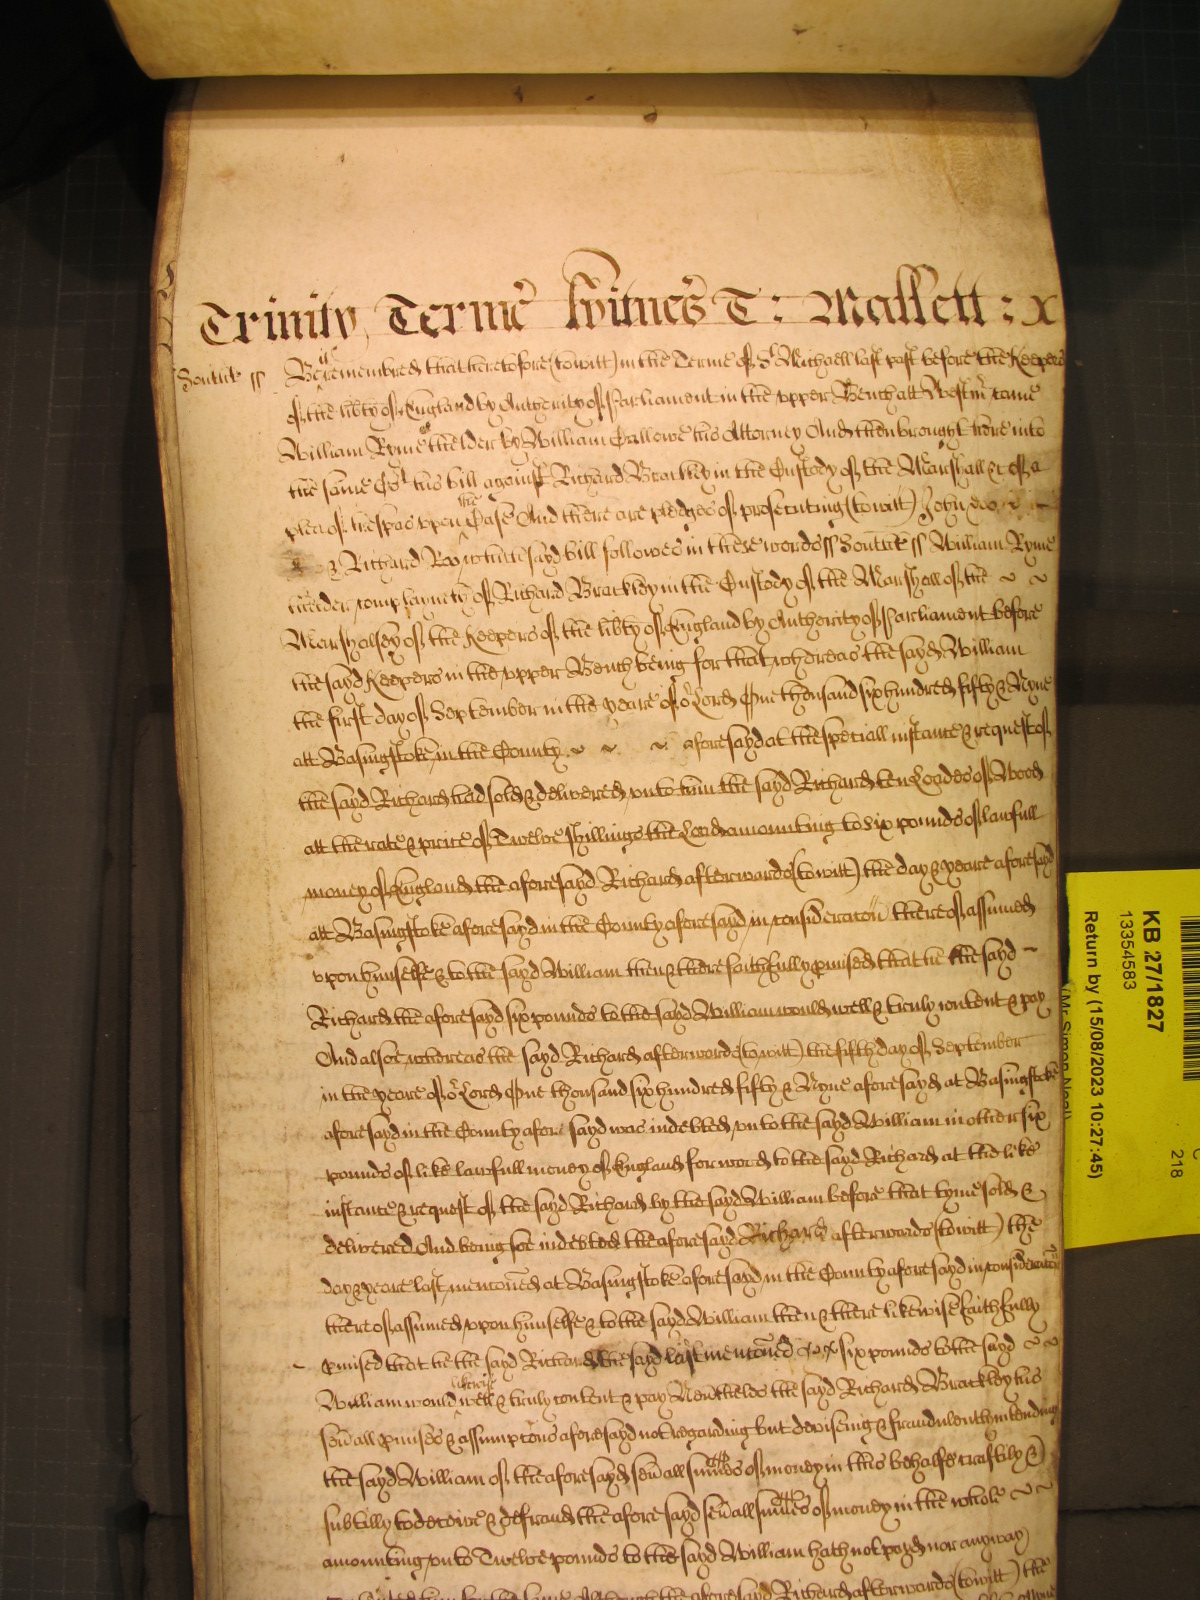 Trinity Terme Witnes T: Mallett: X
Southt ss Be it remembred that heretofore (to witt) in the Terme of St Michaell last past before the Keepers
of the libty of England by Authority of Parliament in the upper Bench att Westmr came
William Ryme the elder by William Gallowe his Attorney And then brought here into
the same Crt his bill against Richard Brackley in the Custody of the Marshall &c of a
plea of trespas upon the Case And there are pledges of prosecuting (to witt) John Doe
& Richard Roe which sayd bill followes in these words ss Southt ss William Ryme
the elder complayneth of Richard Brackley in the Custody of the Marshall of the
Marshalsey of the Keepers of the libty of England by Authority of Parliament before
the sayd Keepers in the upper Bench being for that whereas the sayd William
the first day of September in the yeare of or Lord One thousand six hundred fifty & Nyne
att Basingstoke in the County aforesayd at the speciall instance & request of
the sayd Richard had sold & delivered unto him the sayd Richard ten Loades of Wood
att the rate & price of Twelve shillings the Load amounting to six pounds of lawfull
money of England the aforesayd Richard afterwards (to witt) the day & yeare aforesayd
att Basingstoke aforesayd in the County aforesayd in consideracon thereof assumed
upon himselfe & to the sayd William then & there faithfully pmised that he the sayd
Richard the aforesayd six pounds to the sayd William would well & truly content & pay
And alsoe whereas the sayd Richard afterwards (to witt) the fifth day of September
in the yeare of or Lord One thousand six hundred fifty & Nyne aforesayd at Basingstoke
aforesayd in the County aforesayd was indebted unto the sayd William in other six
pounds of like lawfull money of England for wood to the sayd Richard at the like
instance & request of the sayd Richard by the sayd William before that tyme sold &
delivered And being soe indebted the aforesayd Richard afterwards (to witt) the
day & yeare last menconed at Basingstoke aforesayd in the County aforesayd in consideracon
thereof assumed upon himselfe & to the sayd William then & there likewise faithfully
pmised that he the sayd Richard the sayd last menconed six pounds to the sayd
William would likewise well & truly content & pay Nevthelesse the sayd Richard Brackley his
sevall pmises & assumpcons aforesayd not regarding but devising & fraudulently intending
the sayd William of the aforesayd sevall summes of money in this behalfe craftily &
subtilly to deceive & defraud the aforesayd sevall summes of money in the whole
amounting unto Twelve pounds to the sayd William hath not payd nor any way
the aforesayd Richard afterwards (to witt) the
KB 27/1827
13354583
Return by (15/08/2023 10:27:45)
218